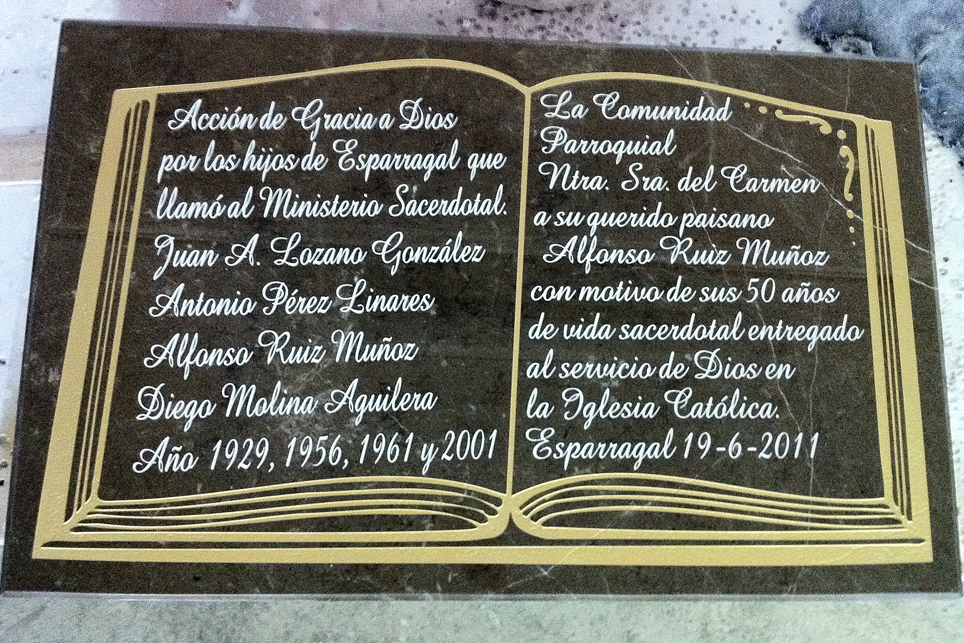 Acción de Gracia a Dios
por los hijos de Esparragal que
llamó al Ministerio Sacerdotal.
Juan A. Lozano González
Antonio Pérez Linares
Alfonso Ruiz Muñoz
Diego Molina Aguilera
Año 1929, 1956, 1961 y 2001
La Comunidad
Parroquial
Ntra. Sra. del Carmen
a su querido paisano
Alfonso Ruiz Muñoz
con motivo de sus 50 años
de vida sacerdotal entregado
al servicio de Dios en
la Iglesia Católica.
Esparragal 19-6-2011